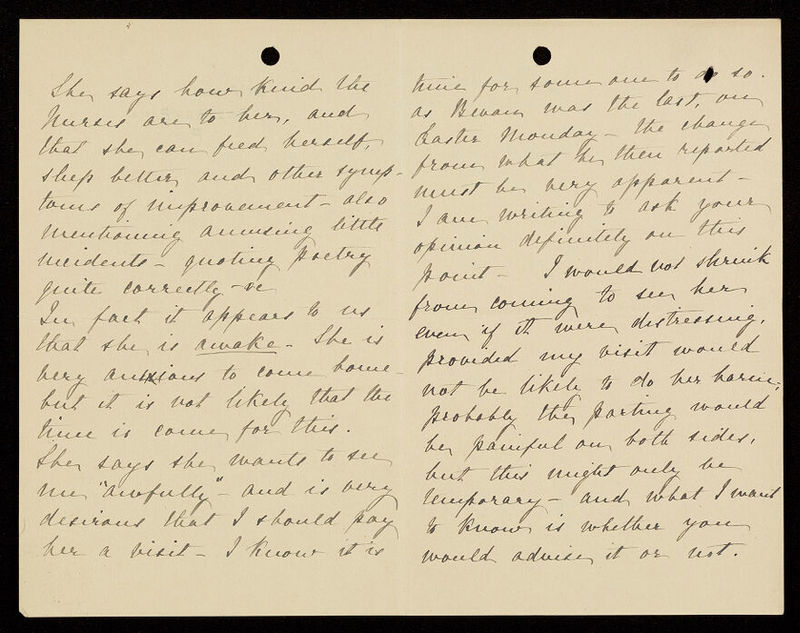 She says how kind the
Nurses are to her, and
that she can feed herself,
sleep better, and other symp-
toms of improvement - also
mentioning amusing little
incidents - quoting poetry
quite correctly -
In fact it appears to us
that she is awake - She is
very anxious to come home -
but it is not likely that the
time is come for this.
She says she wants to see
me "awfully" - and is very
desirous that I should pay
her a visit - I know it is
time for some one to do so.
as Bevan was the last, on
Easter Monday - the change
from what he then reported
must be very apparent -
I am writing to ask your
opinion definitely on this
point - I would not shrink
from coming to see her
even if it were distressing,
provided my visit would
not be likely to do her harm;
probably the parting would
be painful on both sides,
but this might only be
temporary - and what I want
to know is whether you
would advise it or not.